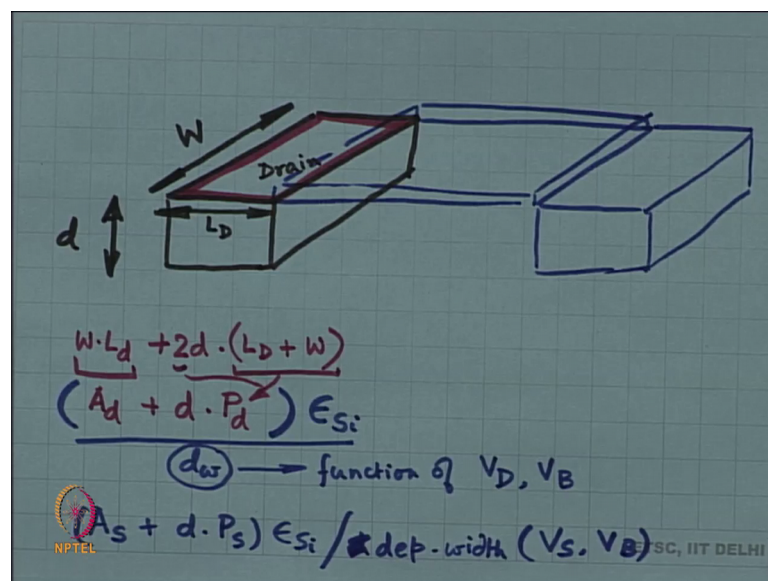 W
Drain
d
L_D
W·L_d + 2d·(L_D + W)
(A_d + d·P_d) ϵ_Si
d_ω → function of V_D, V_B
A_s + d·P_s) ϵ_Si / dep-width (V_S, V_B)
NPTEL
ETSC, IIT DELHI